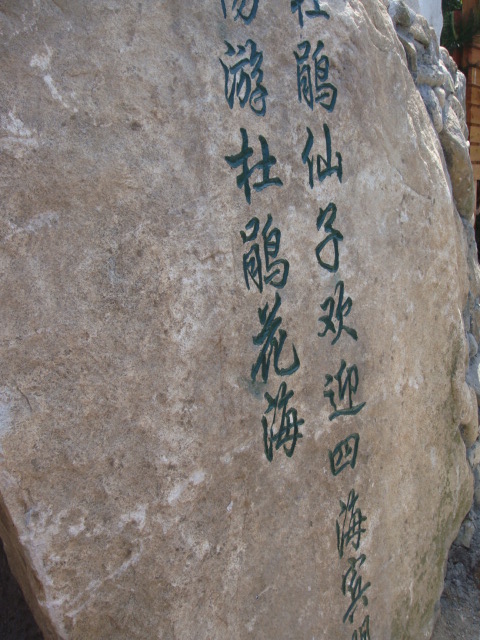 杜鹃仙子欢迎四海宾朋
游杜鹃花海